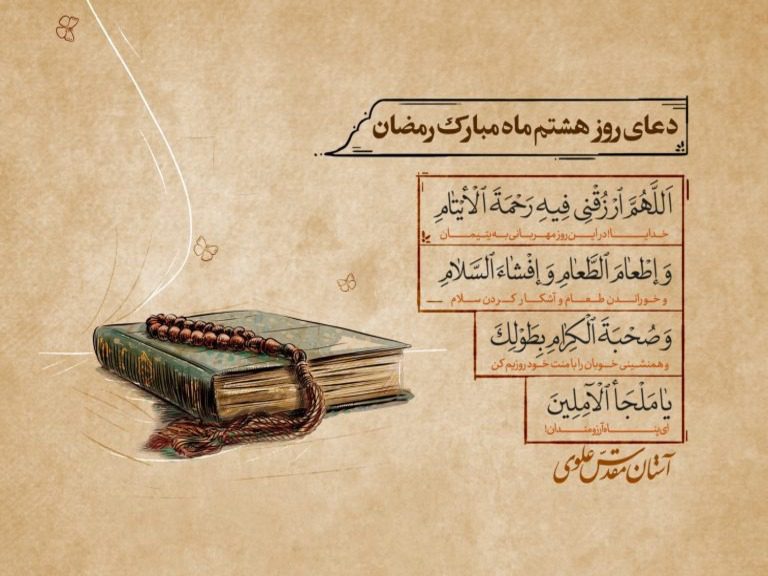 دعای روز هشتم ماه مبارک رمضان
اَللَّهُمَّ ٱرْزُقْنِي فِيهِ رَحْمَةَ ٱلْأَيْتَامِ
خدایا! در این روز مهربانی به یتیمان
وَ إِطْعَامَ ٱلطَّعَامِ وَ إِفْشَاءَ ٱلسَّلَامِ
و خوراندن طعام و آشکار کردن سلام
وَ صُحْبَةَ ٱلْكِرَامِ بِطَوْلِكَ
و همنشینی خوبان را با منت خود روزیم کن
يَا مَلْجَأَ ٱلْآمِلِينَ
ای پناه آرزومندان!
آستان مقدّس علوی